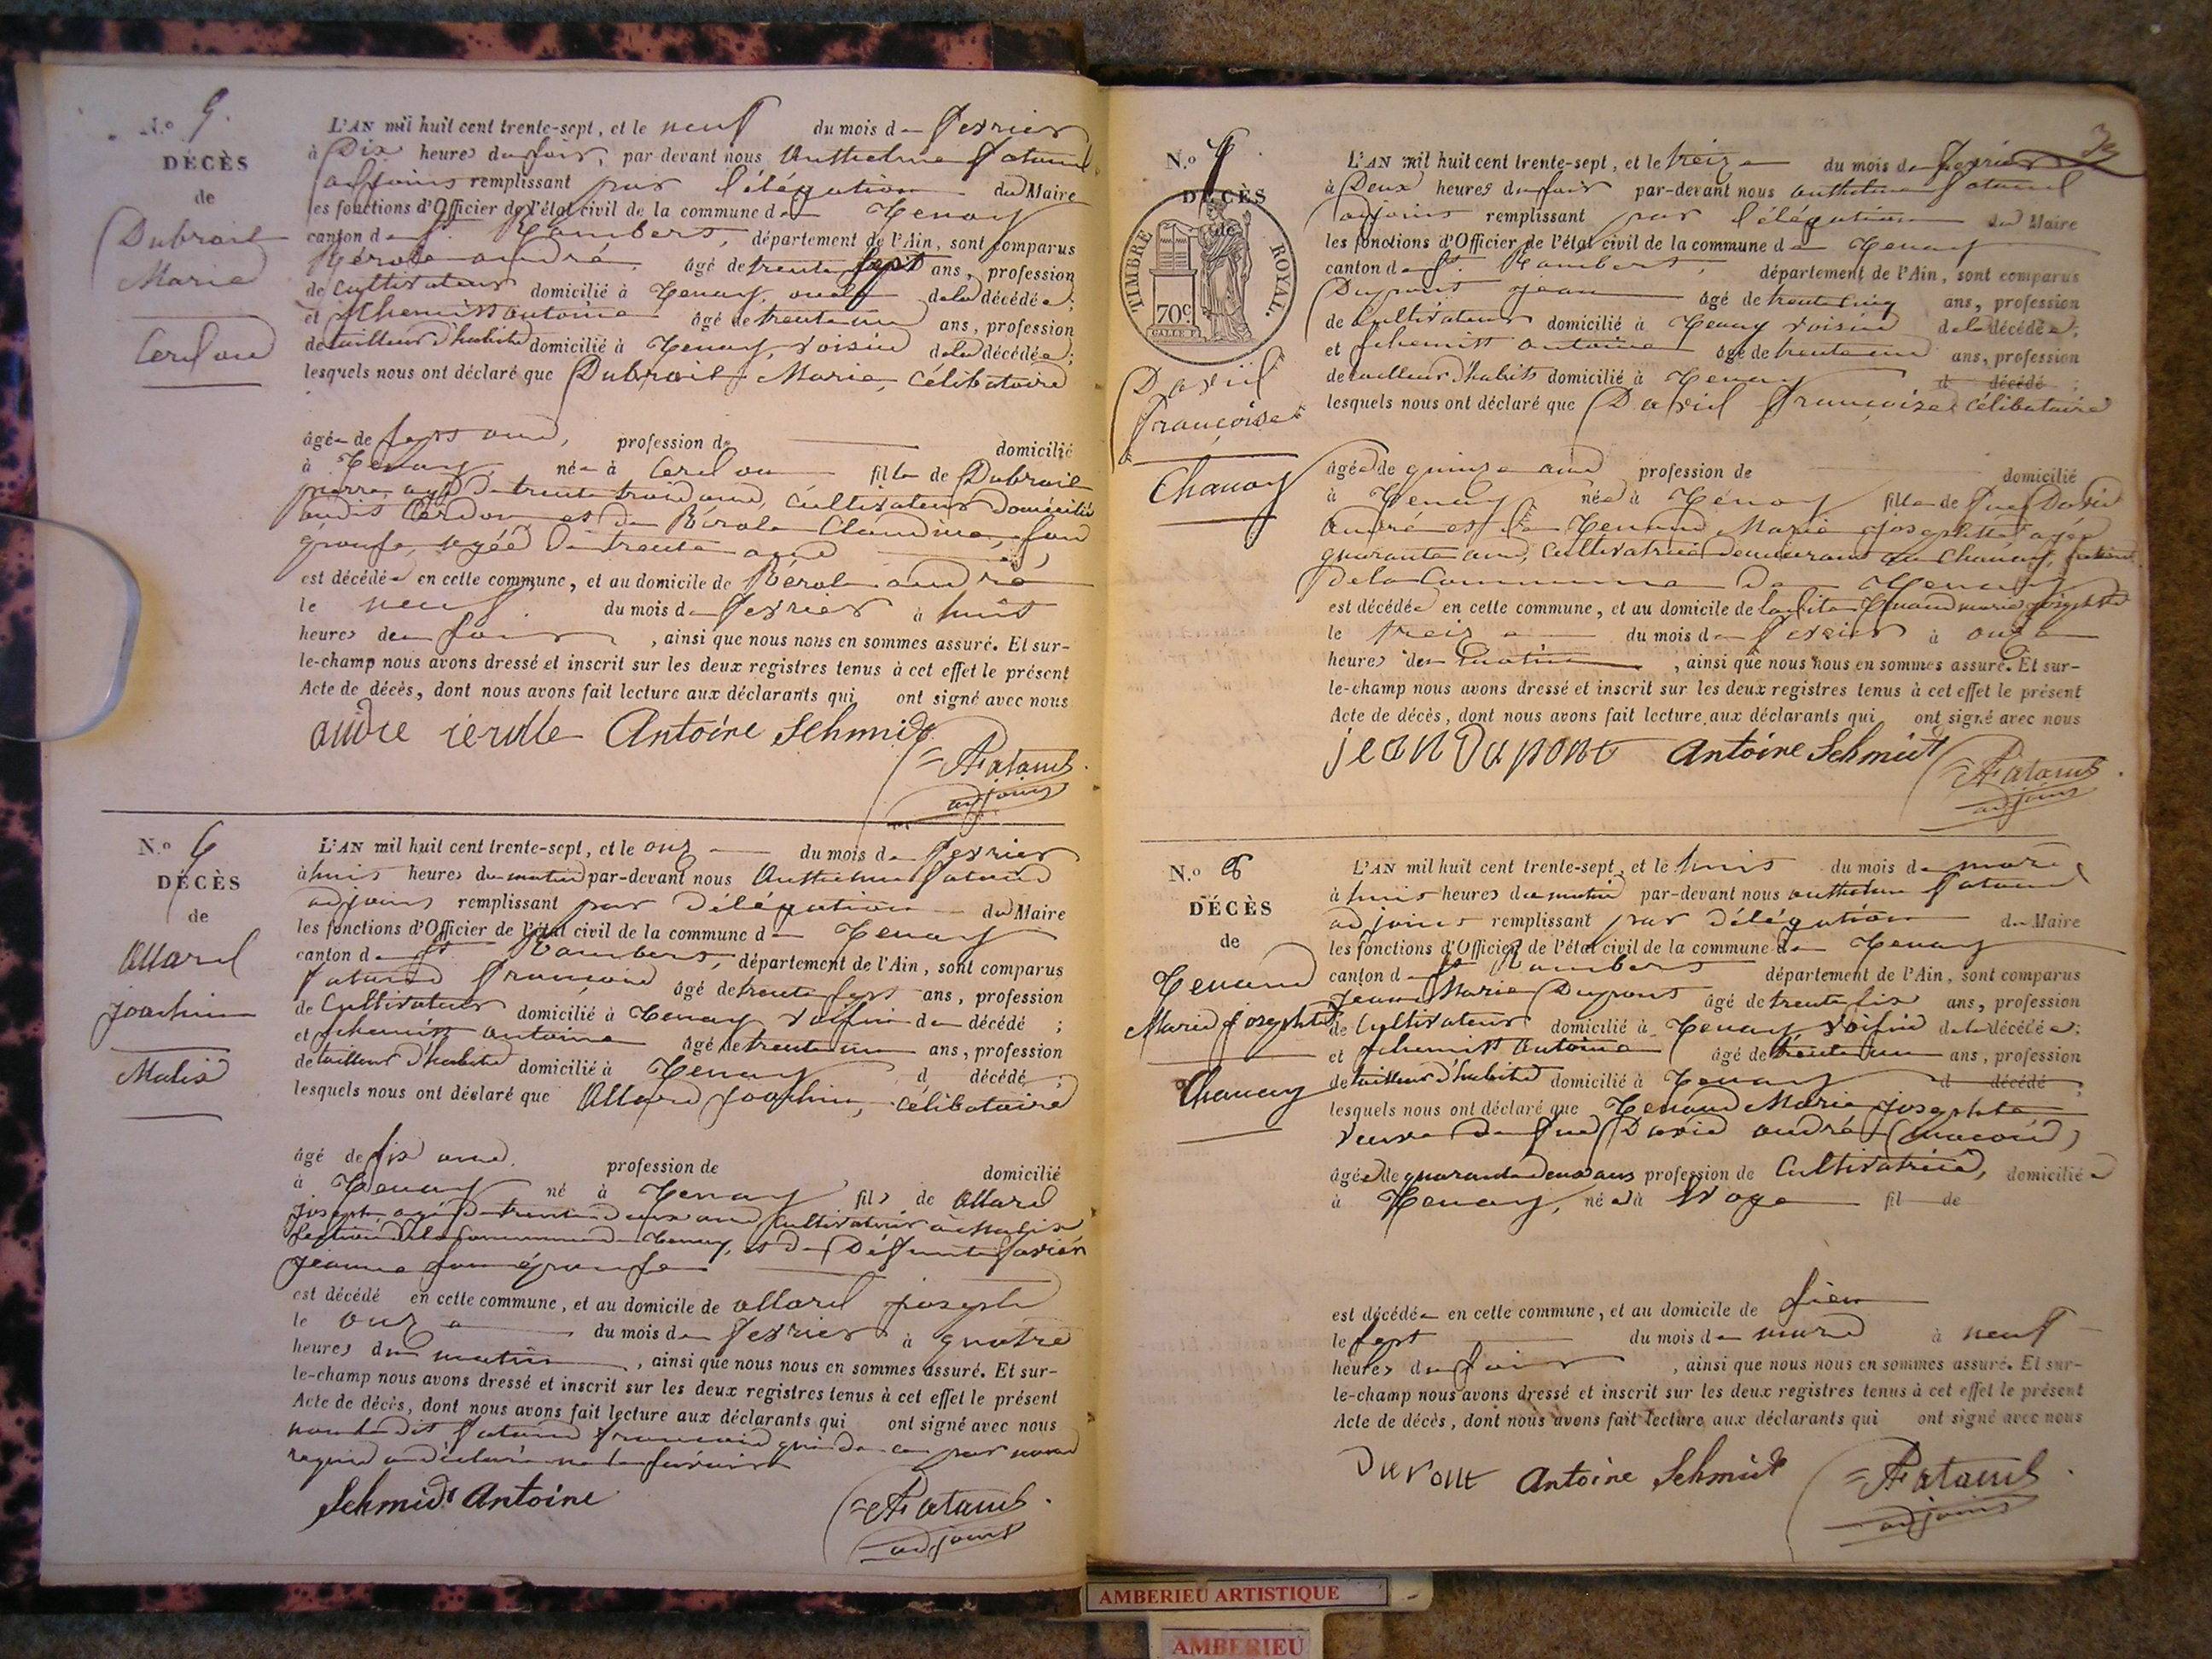 N.o 5.
DÉCÈS
de
Dubreuil
Marie
Cerdon
L'AN mil huit cent trente-sept, et le neuf du mois de fevrier
à Dix heures du soir, par devant nous Anthelme Fatoud
adjoint remplissant par délégation du Maire
les fonctions d'Officier de l'état civil de la commune de Tenay
canton de St. Rambert, département de l'Ain, sont comparus
Pérole andré âgé de trente sept ans, profession
de cultivateur domicilié à Tenay, oncle de la décédée;
et Schemitt antoine âgé de trente un ans, profession
de tailleur d'habits domicilié à Tenay, voisin de la décédée;
lesquels nous ont déclaré que Dubreuil Marie, célibataire
âgée de sept ans, profession de domicilié
à Tenay, née à Cerdon fille de Dubreuil
pierre agé de trente trois ans, cultivateur domicilié
audit Cerdon et de Pérole Claudine, son
épouse, agée de trente ans
est décédée en cette commune, et au domicile de Pérole andré
le neuf du mois de fevrier à huit
heures du soir, ainsi que nous nous en sommes assuré. Et sur-
le-champ nous avons dressé et inscrit sur les deux registres tenus à cet effet le présent
Acte de décès, dont nous avons fait lecture aux déclarants qui ont signé avec nous
Antoine Schmidt
adjoint
N.o 6
DÉCÈS
de
Allard
Joachim
Malix
L'AN mil huit cent trente-sept, et le onze du mois de fevrier
à huit heures du matin par-devant nous Anthelme Fatoud
adjoint remplissant par délégation du Maire
les fonctions d'Officier de l'état civil de la commune de Tenay
canton de St. Rambert, département de l'Ain, sont comparus
Fatoud François âgé de trente sept ans, profession
de Cultivateur domicilié à Tenay voisin du décédé;
et Schemitt antoine âgé de trente un ans, profession
de tailleur d'habits domicilié à Tenay d décédé;
lesquels nous ont déclaré que Allard Joachim, célibataire
âgé de six ans, profession de domicilié
à Tenay né à Tenay fils de Allard
joseph agé de trente deux ans Cultivateur à Malix
section de la commune de Tenay, et de Défunte
jeanne son épouse
est décédé en cette commune, et au domicile de allard joseph
le onze du mois de fevrier à quatre
heures du matin, ainsi que nous nous en sommes assuré. Et sur-
le-champ nous avons dressé et inscrit sur les deux registres tenus à cet effet le présent
Acte de décès, dont nous avons fait lecture aux déclarants qui ont signé avec nous
non ledit Fatoud françois qui de ce par nous
requis a déclaré ne le savoir
Schmidt Antoine
adjoint
N.o 7
DÉCÈS
de
TIMBRE ROYAL.
70c
David
Françoise
Chanay
L'AN mil huit cent trente-sept, et le treize du mois de fevrier
à Deux heures du soir par-devant nous anthelme Fatoud
adjoint remplissant par délégation du Maire
les fonctions d'Officier de l'état civil de la commune de Tenay
canton de St. Rambert, département de l'Ain, sont comparus
Dupont jean âgé de trente cinq ans, profession
de cultivateur domicilié à Tenay voisin de la décédée;
et Schemitt antoine âgé de trente un ans, profession
de tailleur d'habits domicilié à Tenay d décédé;
lesquels nous ont déclaré que David Françoise célibataire
âgée de quinze ans profession de domicilié
à Tenay née à Tenay fille de feu David
André et de Tenand Marie josephte agée
quarante ans, cultivatrice demeurant au Chanay, section
de la Commune de Tenay
est décédée en cette commune, et au domicile de ladite Tenand marie josephte
le treize du mois de fevrier à onze
heures du matin, ainsi que nous nous en sommes assuré. Et sur-
le-champ nous avons dressé et inscrit sur les deux registres tenus à cet effet le présent
Acte de décès, dont nous avons fait lecture aux déclarants qui ont signé avec nous
jean Dupont Antoine Schmidt
adjoint
N.o 8
DÉCÈS
de
Tenand
Marie josephte
Chanay
L'AN mil huit cent trente-sept, et le huit du mois de mars
à huit heures du matin par-devant nous anthelme Fatoud
adjoint remplissant par délégation du Maire
les fonctions d'Officier de l'état civil de la commune de Tenay
canton de St Rambert département de l'Ain, sont comparus
Jean Marie Dupont âgé de trente six ans, profession
de Cultivateur domicilié à Tenay voisin de la décédée;
et Schemitt Antoine âgé de trente un ans, profession
de tailleur d'habits domicilié à Tenay d décédé;
lesquels nous ont déclaré que Tenand Marie josephte
veuve de feu David andré
âgée de quarante deux ans profession de Cultivatrice, domiciliée
à Tenay, née à fil de
est décédée en cette commune, et au domicile de sien
le sept du mois de mars à neuf
heures du soir, ainsi que nous nous en sommes assuré. Et sur-
le-champ nous avons dressé et inscrit sur les deux registres tenus à cet effet le présent
Acte de décès, dont nous avons fait lecture aux déclarants qui ont signé avec nous
Antoine Schmidt
adjoint
AMBERIEU ARTISTIQUE
AMBERIEU